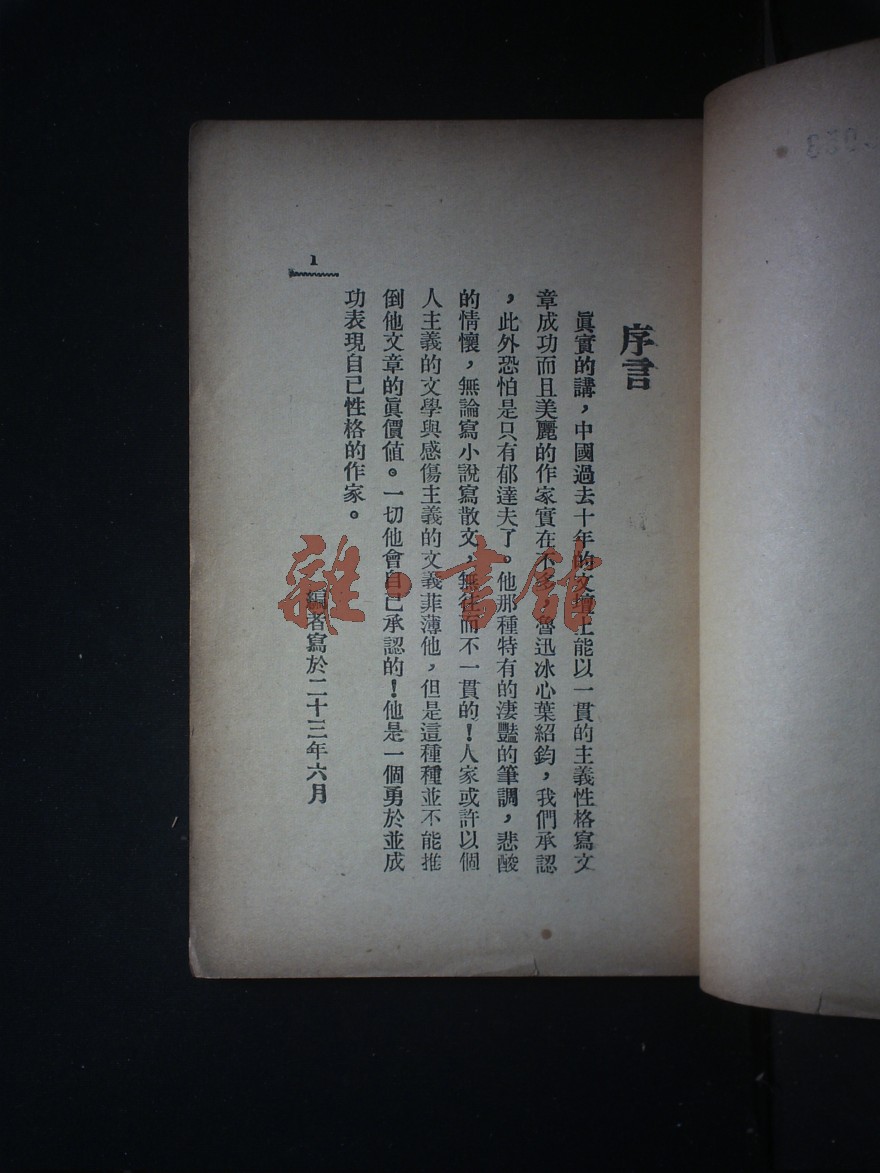 序言
眞實的講，中國過去十年的文壇上能以一貫的主義性格寫文
章成功而且美麗的作家實在不多，魯迅冰心葉紹鈞，我們承認
，此外恐怕是只有郁達夫了。他那種特有的淒豔的筆調，悲酸
的情懷，無論寫小說寫散文，無往而不一貫的！人家或許以個
人主義的文學與感傷主義的文義菲薄他，但是這種種並不能推
倒他文章的眞價値。一切他會自己承認的！他是一個勇於並成
功表現自己性格的作家。
編者寫於二十三年六月
1
雜·書館